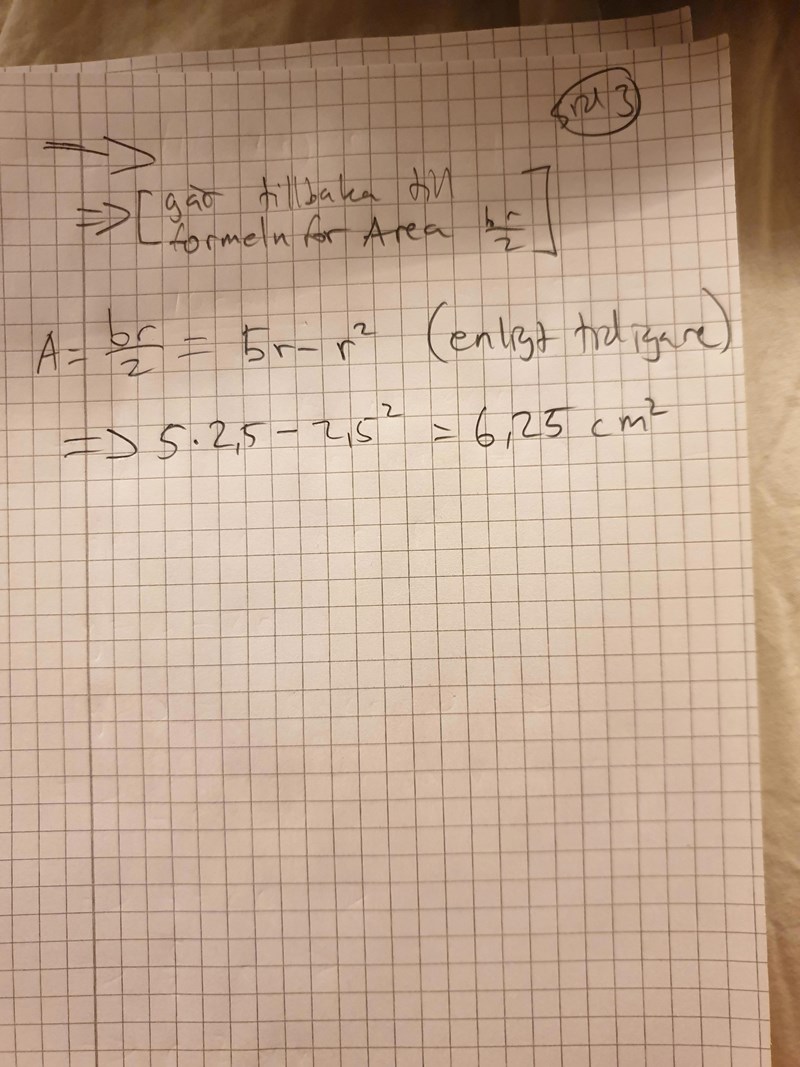 sid 3
=> [går tillbaka till
formeln för Area br/2]
A = br/2 = 5r - r² (enligt tidigare)
=> 5·2,5 - 2,5² = 6,25 cm²